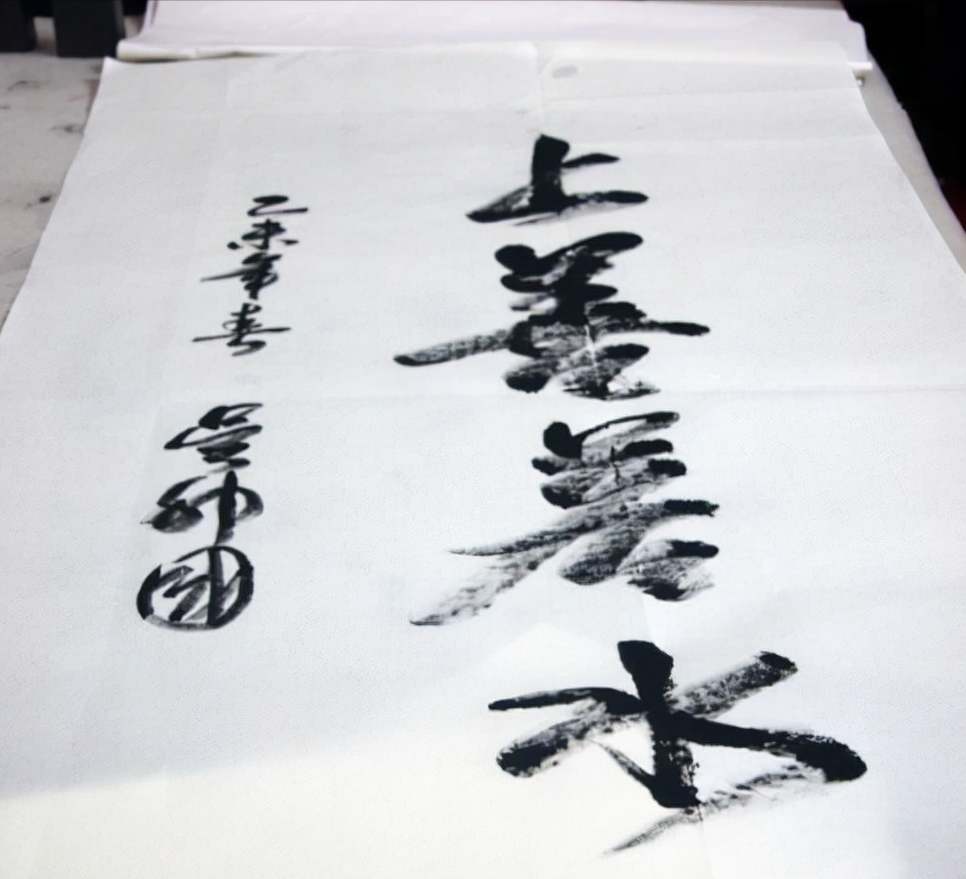 上善差水
乙未年春